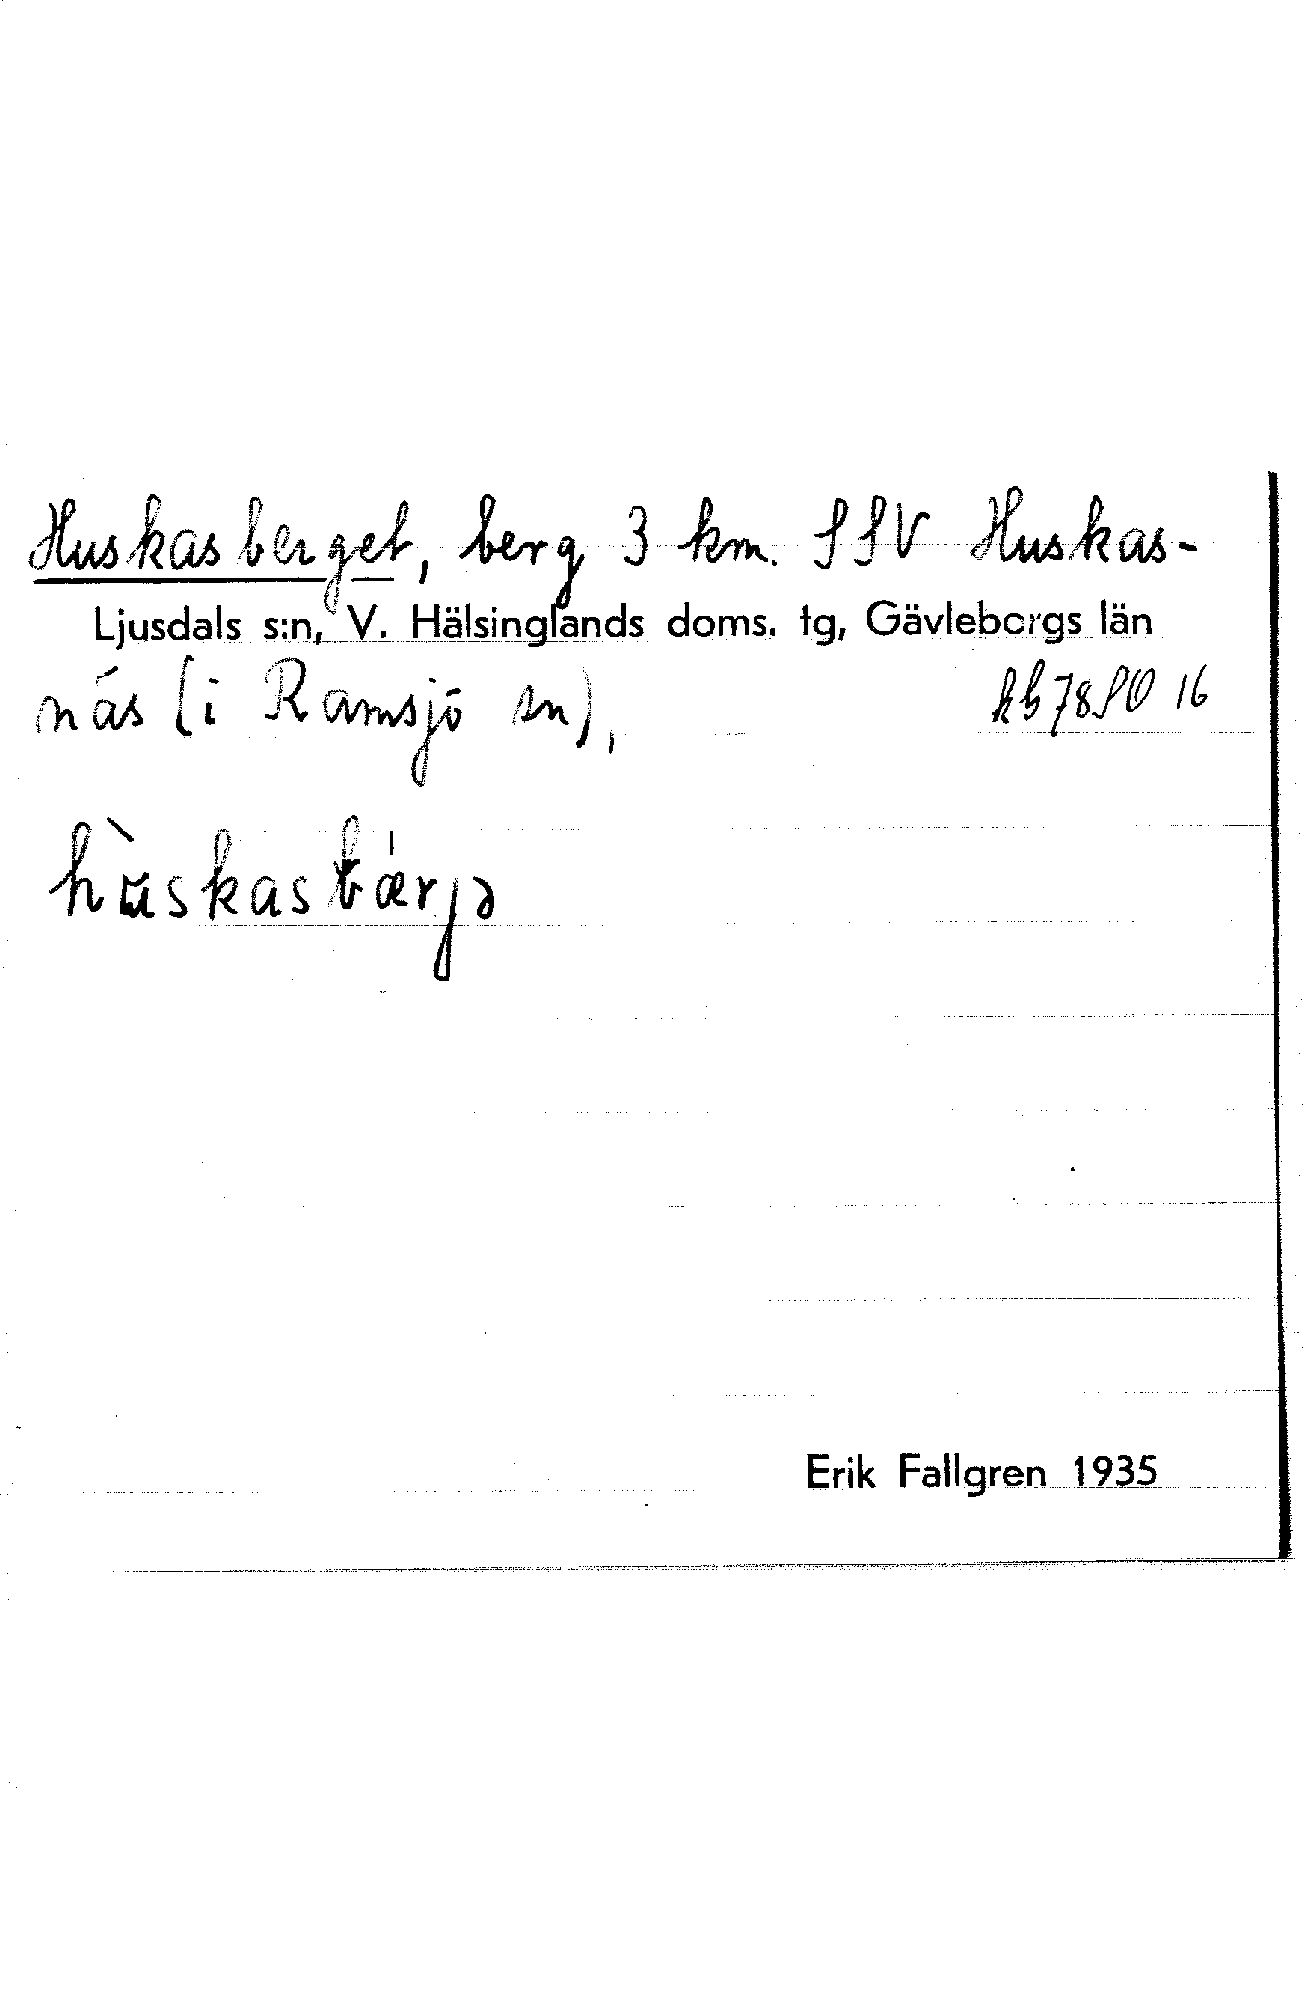 Huskasberget, berg 3 km. SSV Huskas-
Ljusdals s:n, V. Hälsinglands doms. tg, Gävleborgs län
näs (i Ramsjö sn),
kb 78 SO 16
hùskasbǽrjə
Erik Fallgren 1935